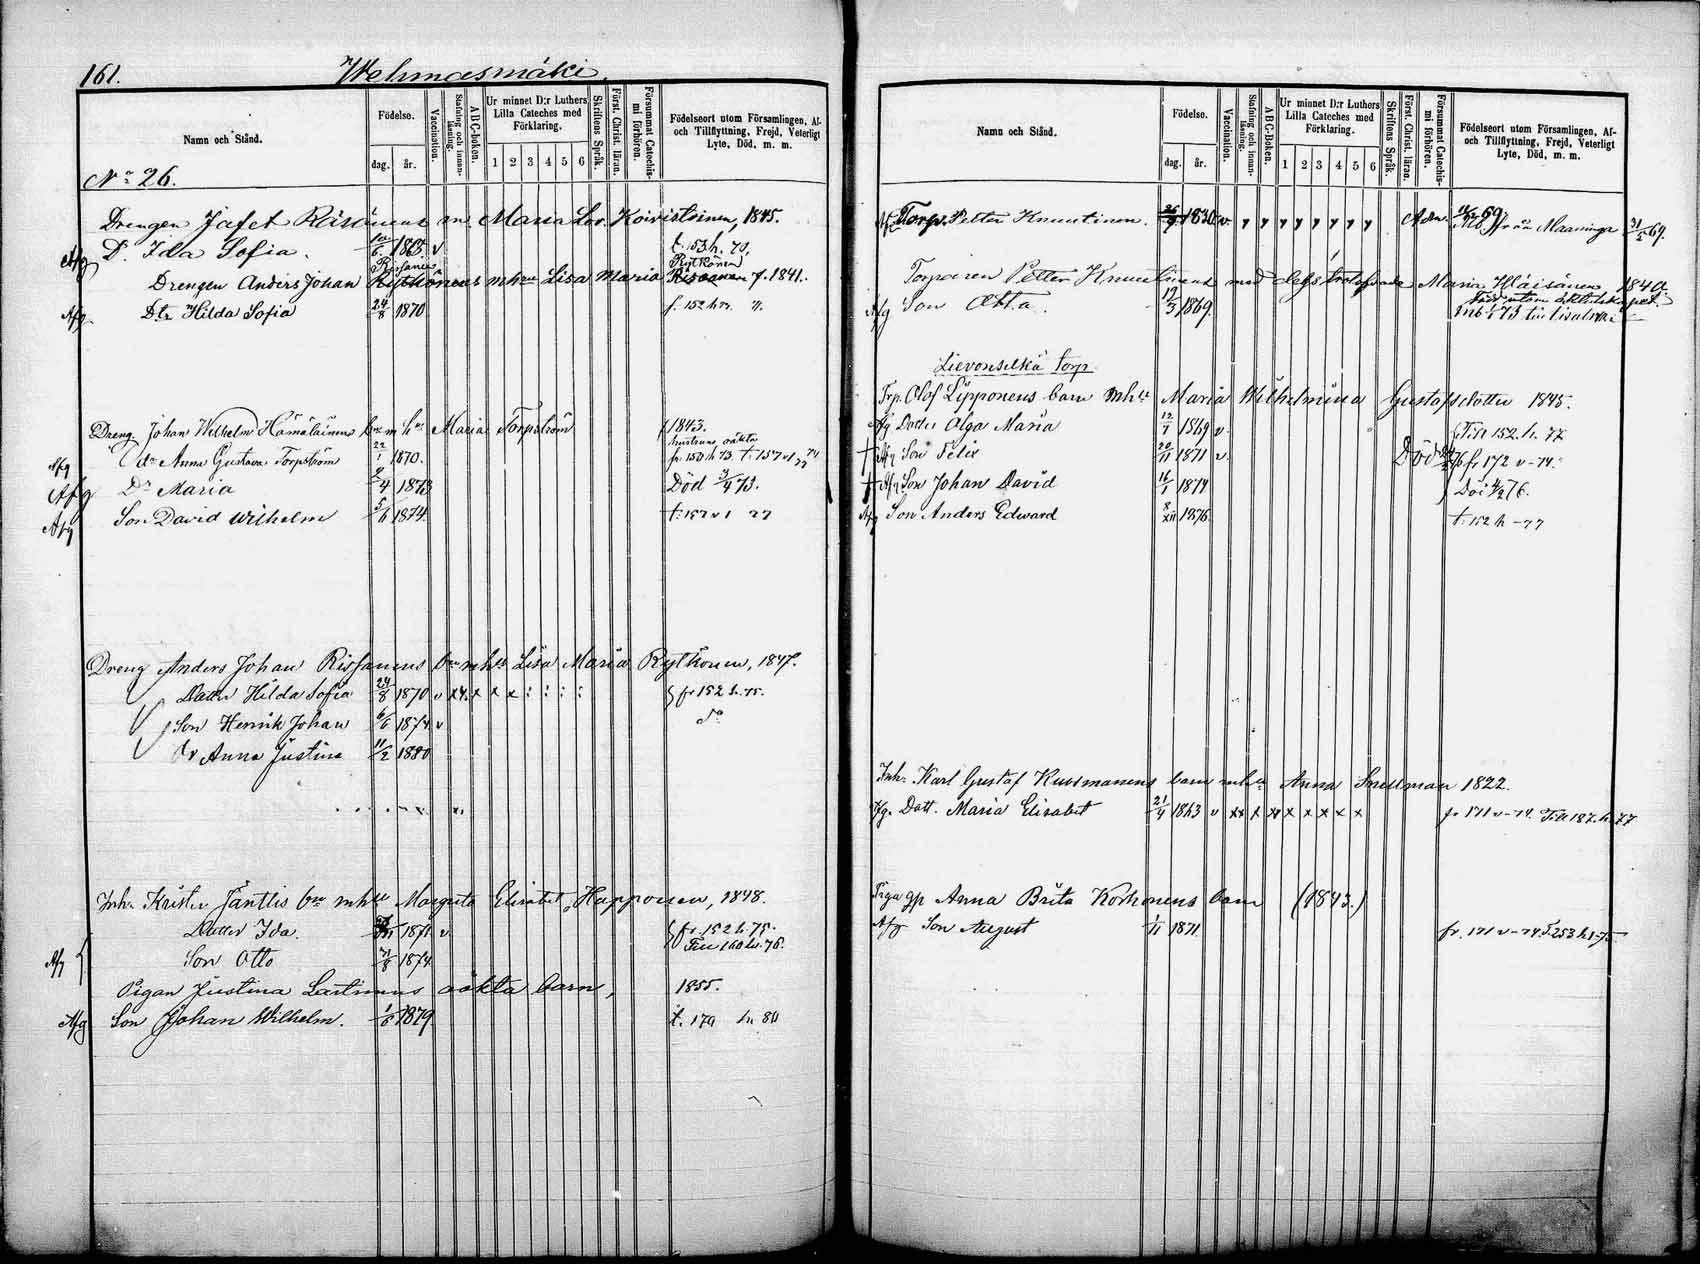 161. Wehmasmäki.
Namn och Stånd.
Födelse.
dag. år.
Vaccination.
Stafning och innanläsning.
ABC-boken.
Ur minnet D:r Luthers Lilla Cateches med Förklaring.
1 2 3 4 5 6
Skriftens Språk.
Först. Christ. läran.
Försummat Catechismi förhören.
Födelseort utom Församlingen, Af- och Tillflyttning, Frejd, Veterligt Lyte, Död, m. m.
No 26.
Drengen Jafet Räisänens m. Maria Lov. Koivistoinen, 1845.
Afg D. Ida Sofia. 10/6 1863 v t. 153 h. 70,
Rissanen Rytkönen
Drengen Anders Johan Rytkönens m hru Lisa Maria Rissanen f. 1841.
Afg Dtr Hilda Sofia 24/8 1870 f. 152 h
Dreng. Johan Wilhelm Hämäläinens bn m hu Maria Torpström 1843.
hustruns oäkta
Afg dr Anna Gustava Torpström 22/1 1870. fr 150 h 73. t 157 v 1 77
Afg Dr Maria /4 1873 Död 3/4 73.
Afg Son David Wilhelm 5/6 1874. t. 157 v 1 77
Dreng Anders Johan Rissanens bn m hu Lisa Maria Rytkönen, 1847.
Dotter Hilda Sofia 24/8 1870 v x x. x x x : : : : fr 152 h. 75.
Son Henrik Johan 6/6 1874 v do
Dr Anna Justina 11/2 1880
Inh. Krister Jänttis bn m hu Margreta Elisabet Happonen, 1848.
Dotter Ida. 1871 v fr. 152 h. 75.
Till 160 h. 76.
Afg Son Otto 21/8 1874
Pigan Justina Lastunens oäkta barn, 1855.
Afg Son Johan Wilhelm. 1/6 1879 t. 170 h. 80
Namn och Stånd.
Födelse.
dag. år.
Vaccination.
Stafning och innanläsning.
ABC-boken.
Ur minnet D:r Luthers Lilla Cateches med Förklaring.
1 2 3 4 5 6
Skriftens Språk.
Först. Christ. läran.
Försummat Catechismi förhören.
Födelseort utom Församlingen, Af- och Tillflyttning, Frejd, Veterligt Lyte, Död, m. m.
Torp. Petter Knuutinen. 1830 v. Adm. 69 från Maaninga 31/5 69.
Torparen Petter Knuutinens med legs Maria Hläisänen 1840
Afg Son Abta 12/3 1869. Född utom äktenskapet.
Mb 1/1 73 till Iisalmi
Lievonselkä torp
Trp. Olof Lipponens barn m hu Maria Wilhelmina Gustafsdotter 1845.
Afg Dotter Olga Maria 12/1 1869 v Till 152 h. 77
† Afg Son Felix 20/11 1871 v. Död fr 172 v - 74.
† Afg Son Johan David 16/1 1874 Död 4/2 76.
Afg Son Anders Edward 8/XII 1876. t. 152 h - 77
Inh. Karl Gustaf Kuosmanens barn m hu Anna Snellman 1822.
Afg. Dott. Maria Elisabet 21/4 1863 v xx x xx x x x x x fr 171 v - 74. Till 187. h. 77
Piga gp Anna Brita Korhonens barn (1843.)
Afg Son August 1/11 1871. fr. 171 v - 74. T. 253 h. 1 - 75